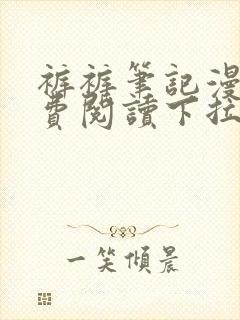 裤裤筆記漫
費閱讀下拉
一笑傾晨